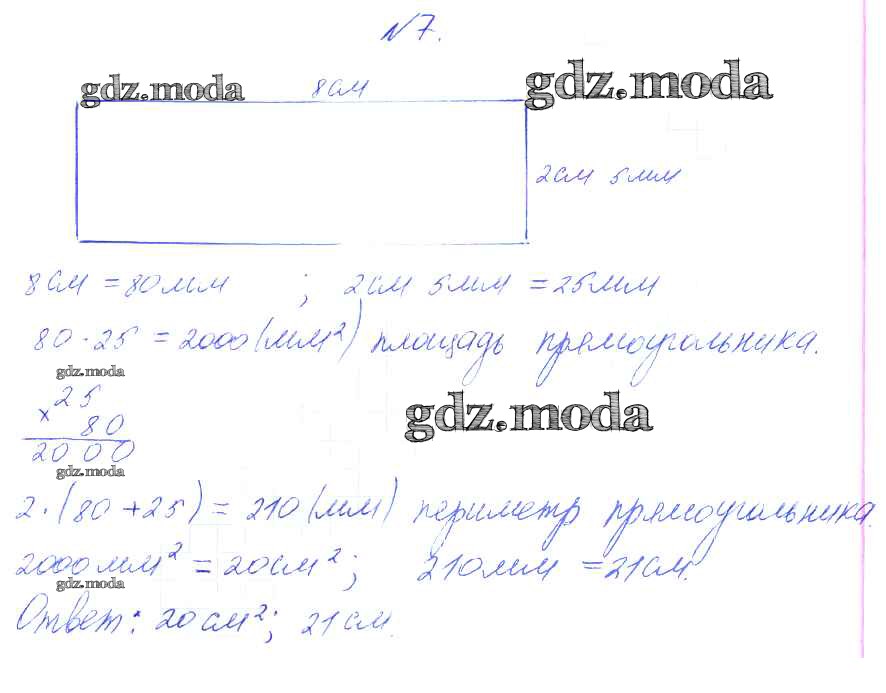 №7.
gdz.moda 8см gdz.moda
2см 5мм
8см = 80мм ; 2см 5мм = 25мм
80 · 25 = 2000 (мм²) площадь прямоугольника.
gdz.moda
25
gdz.moda
× 80
2000
gdz.moda
2 · (80 + 25) = 210 (мм) периметр прямоугольника.
2000мм² = 20см²; 210мм = 21см.
gdz.moda
Ответ: 20см²; 21см.